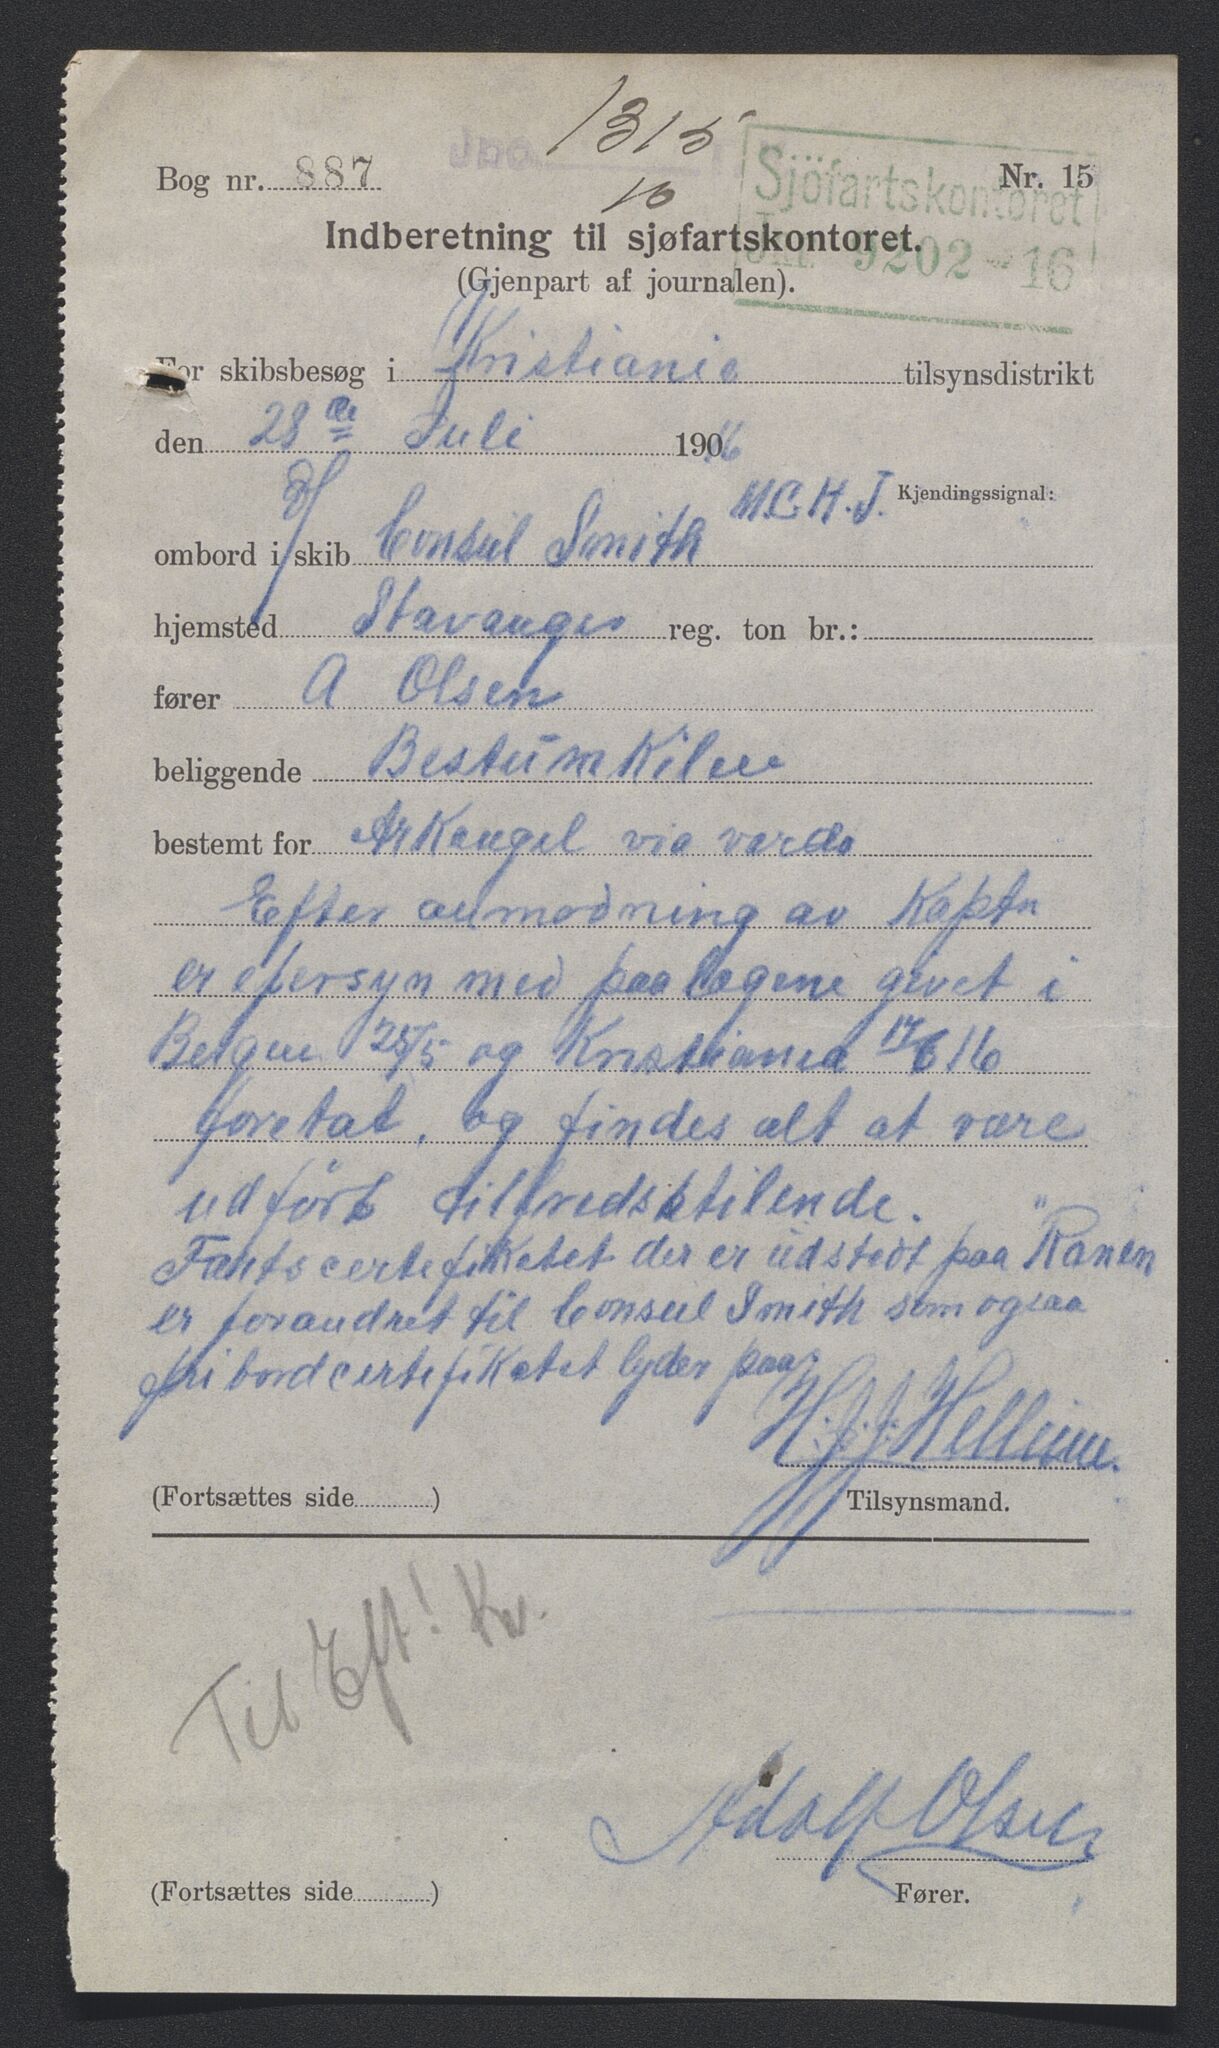 1315
16
Bog nr. 887
Nr. 15
Sjöfartskontoret
Jnr. 9202-16
Indberetning til sjøfartskontoret.
(Gjenpart af journalen).
For skibsbesøg i Kristiania tilsynsdistrikt
den 28de Juli 1916
M.C.H.J. Kjendingssignal:
ombord i D/ skib Consul Smith
hjemsted Stavanger reg. ton br.:
fører A Olsen
beliggende Bestum Kilen
bestemt for Arkangel via vardø
Efter anmodning av Kaptn
er efersyn med paalagene givet i
Bergen 25/5 og Kristiania 17/6 16
foretat, og findes alt at være
udført tilfredsstilende.
Fartscertefiketet der er udstedt paa "Ranen
er forandret til Consul Smith som ogsaa
fribordcertefikatet lyder paa
(Fortsættes side )
Tilsynsmand.
Til Eft! Kv.
Adolf Olsen
(Fortsættes side )
Fører.